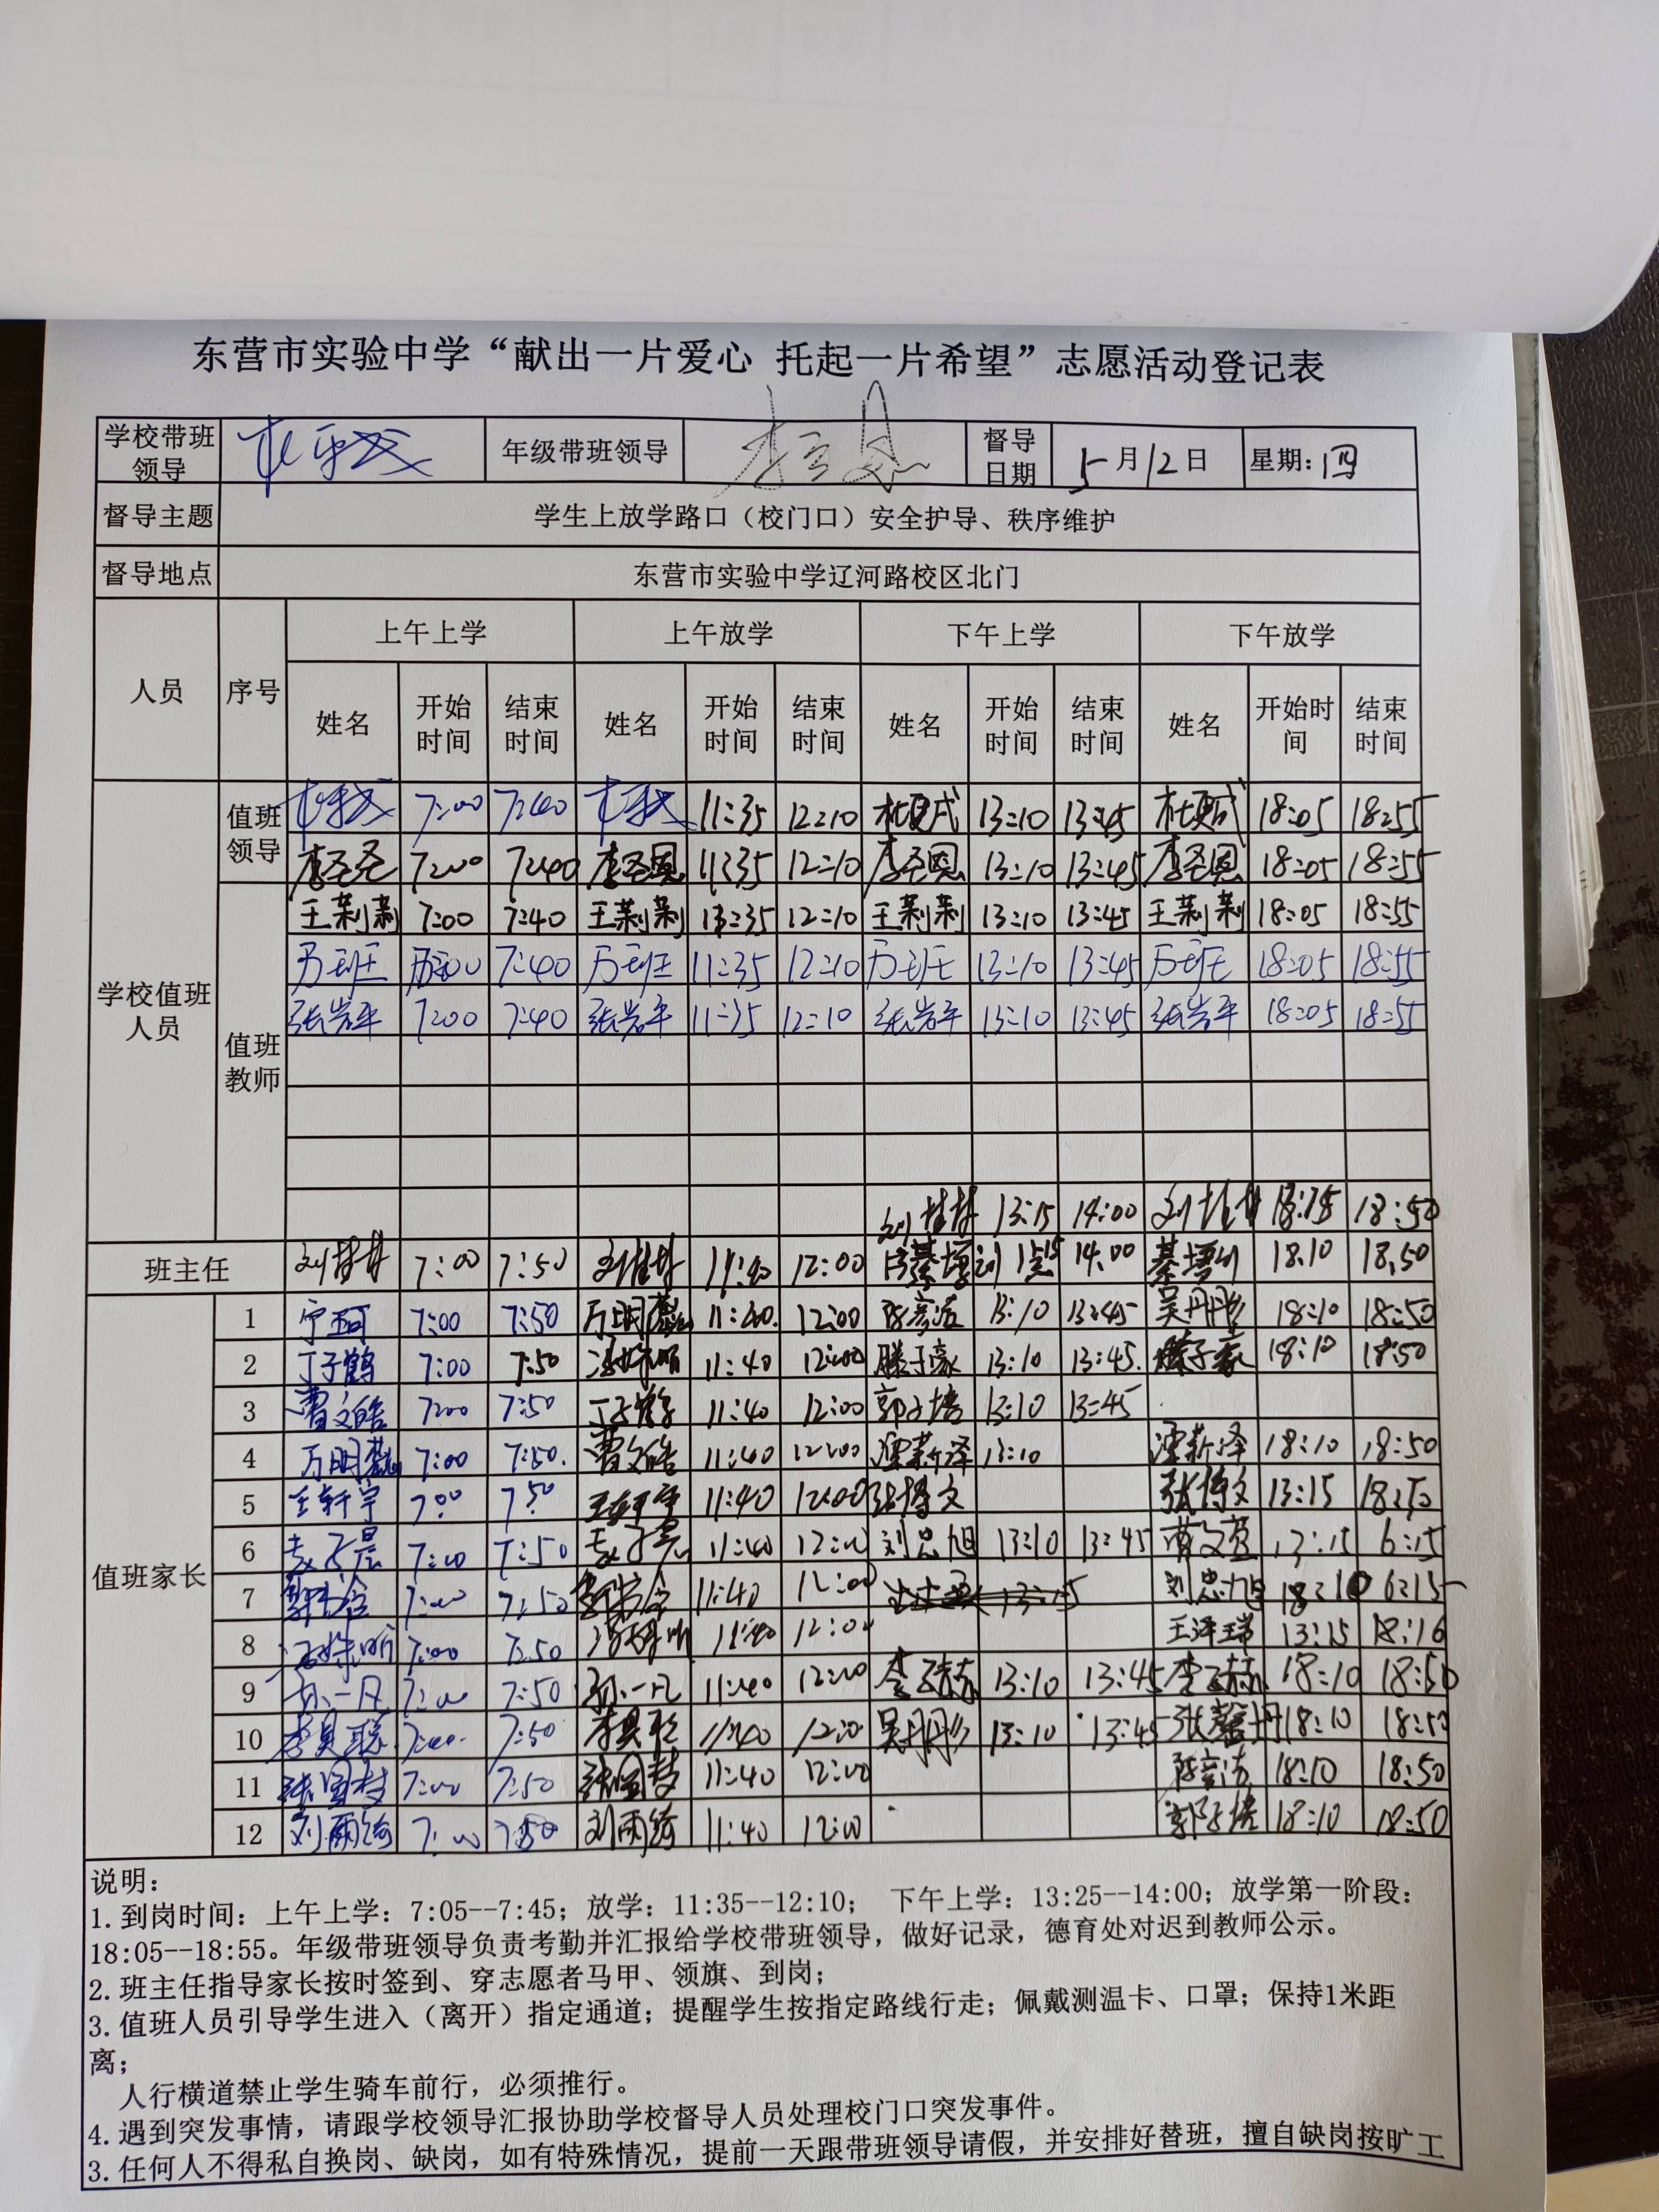 东营市实验中学“献出一片爱心 托起一片希望”志愿活动登记表
学校带班领导 年级带班领导 督导日期 5月12日 星期:四
督导主题 学生上放学路口（校门口）安全护导、秩序维护
督导地点 东营市实验中学辽河路校区北门
人员 序号 上午上学 上午放学 下午上学 下午放学
姓名 开始时间 结束时间 姓名 开始时间 结束时间 姓名 开始时间 结束时间 姓名 开始时间 结束时间
学校值班人员 值班领导 7:00 7:40 11:35 12:10 13:10 13:45 18:05 18:55
李圣恩 7:00 7:40 李圣恩 11:35 12:10 李圣恩 13:10 13:45 李圣恩 18:05 18:55
值班教师 王莉莉 7:00 7:40 王莉莉 12:10 王莉莉 13:10 13:45 王莉莉 18:05 18:55
7:40 11:35 12:10 13:10 13:45 18:05 18:55
张岩平 7:00 7:40 张岩平 11:35 12:10 张岩平 13:10 13:45 张岩平 18:05 18:55
13:15 14:00 18:50
班主任 7:00 7:50 11:40 12:00 14:00 18:10 18:50
值班家长 1 宁珂 7:00 7:50 11:40 12:00 13:10 13:45 吴丹彤 18:10 18:50
2 丁子鹤 7:00 7:50 11:40 12:00 滕子豪 13:10 13:45 滕子豪 18:10 18:50
3 曹文皓 7:00 7:50 丁子鹤 11:40 12:00 郭子培 13:10 13:45
4 7:00 7:50 曹文皓 11:40 12:00 梁新泽 13:10 梁新泽 18:10 18:50
5 王轩宇 7:00 7:50 王轩宇 11:40 12:00 张博文 张博文 13:15 18:50
6 7:00 7:50 11:40 12:00 刘忠旭 13:10 13:45 13:15 6:15
7 7:00 7:50 11:40 12:00 刘忠旭 18:10 6:15
8 7:00 7:50 11:40 12:00 王泽瑞 13:15 18:16
9 孙一凡 7:00 7:50 孙一凡 11:40 12:00 13:10 13:45 18:10 18:50
10 7:00 7:50 11:40 12:00 吴丹彤 13:10 13:45 张馨丹 18:10 18:50
11 7:00 7:50 11:40 12:00 18:10 18:50
12 刘雨绮 7:00 7:50 刘雨绮 11:40 12:00 郭子培 18:10 18:50
说明：
1.到岗时间：上午上学：7:05--7:45；放学：11:35--12:10； 下午上学：13:25--14:00；放学第一阶段：
18:05--18:55。年级带班领导负责考勤并汇报给学校带班领导，做好记录，德育处对迟到教师公示。
2.班主任指导家长按时签到、穿志愿者马甲、领旗、到岗；
3.值班人员引导学生进入（离开）指定通道；提醒学生按指定路线行走；佩戴测温卡、口罩；保持1米距
离；
人行横道禁止学生骑车前行，必须推行。
4.遇到突发事情，请跟学校领导汇报协助学校督导人员处理校门口突发事件。
3.任何人不得私自换岗、缺岗，如有特殊情况，提前一天跟带班领导请假，并安排好替班，擅自缺岗按旷工